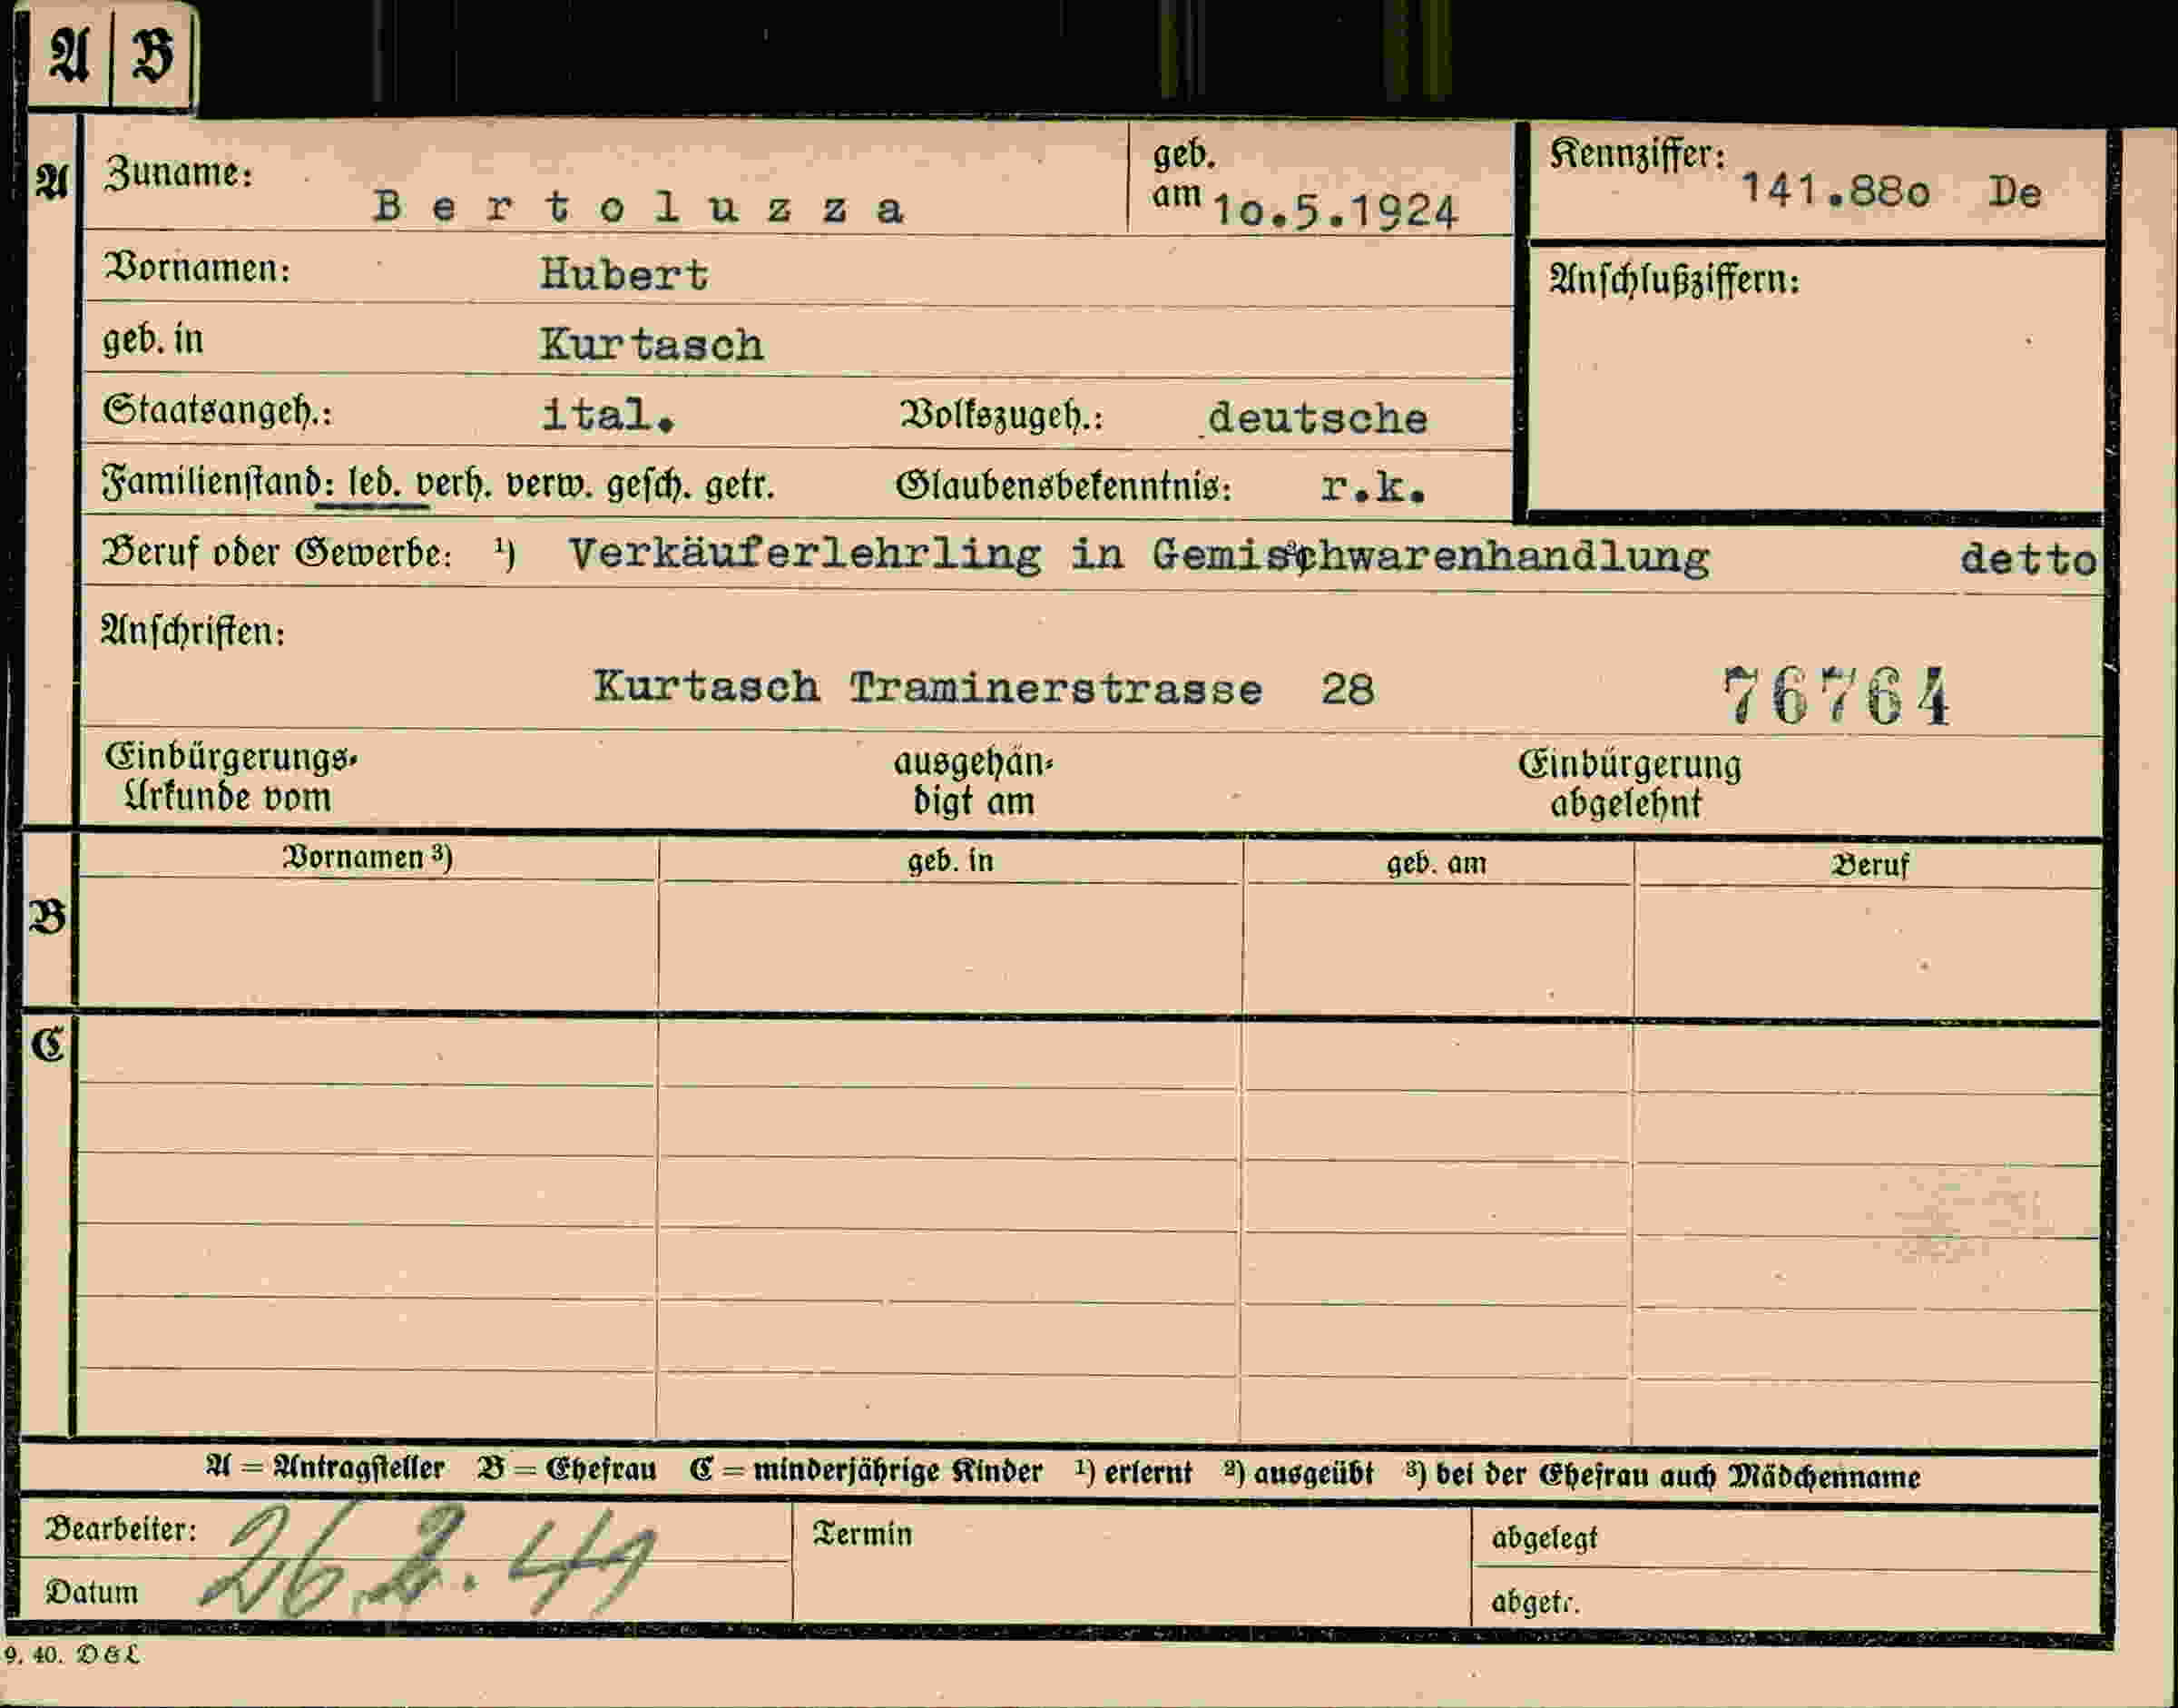 A B
A Zuname: Bertoluzza geb. am 10.5.1924 Kennziffer: 141.880 De
Vornamen: Hubert Anschlußziffern:
geb. in Kurtasch
Staatsangeh.: ital. Volkszugeh.: deutsche
Familienstand: led. verh. verw. gesch. getr. Glaubensbekenntnis: r.k.
Beruf oder Gewerbe: ¹) Verkäuferlehrling in Gemischwarenhandlung detto
Anschriften:
Kurtasch Traminerstrasse 28 76764
Einbürgerungs- ausgehän- Einbürgerung
Urkunde vom digt am abgelehnt
Vornamen ³) geb. in geb. am Beruf
B
C
A = Antragsteller B = Ehefrau C = minderjährige Kinder ¹) erlernt ²) ausgeübt ³) bei der Ehefrau auch Mädchenname
Bearbeiter: Termin abgelegt
Datum 26.2.41 abgetr.
9. 40. D&L